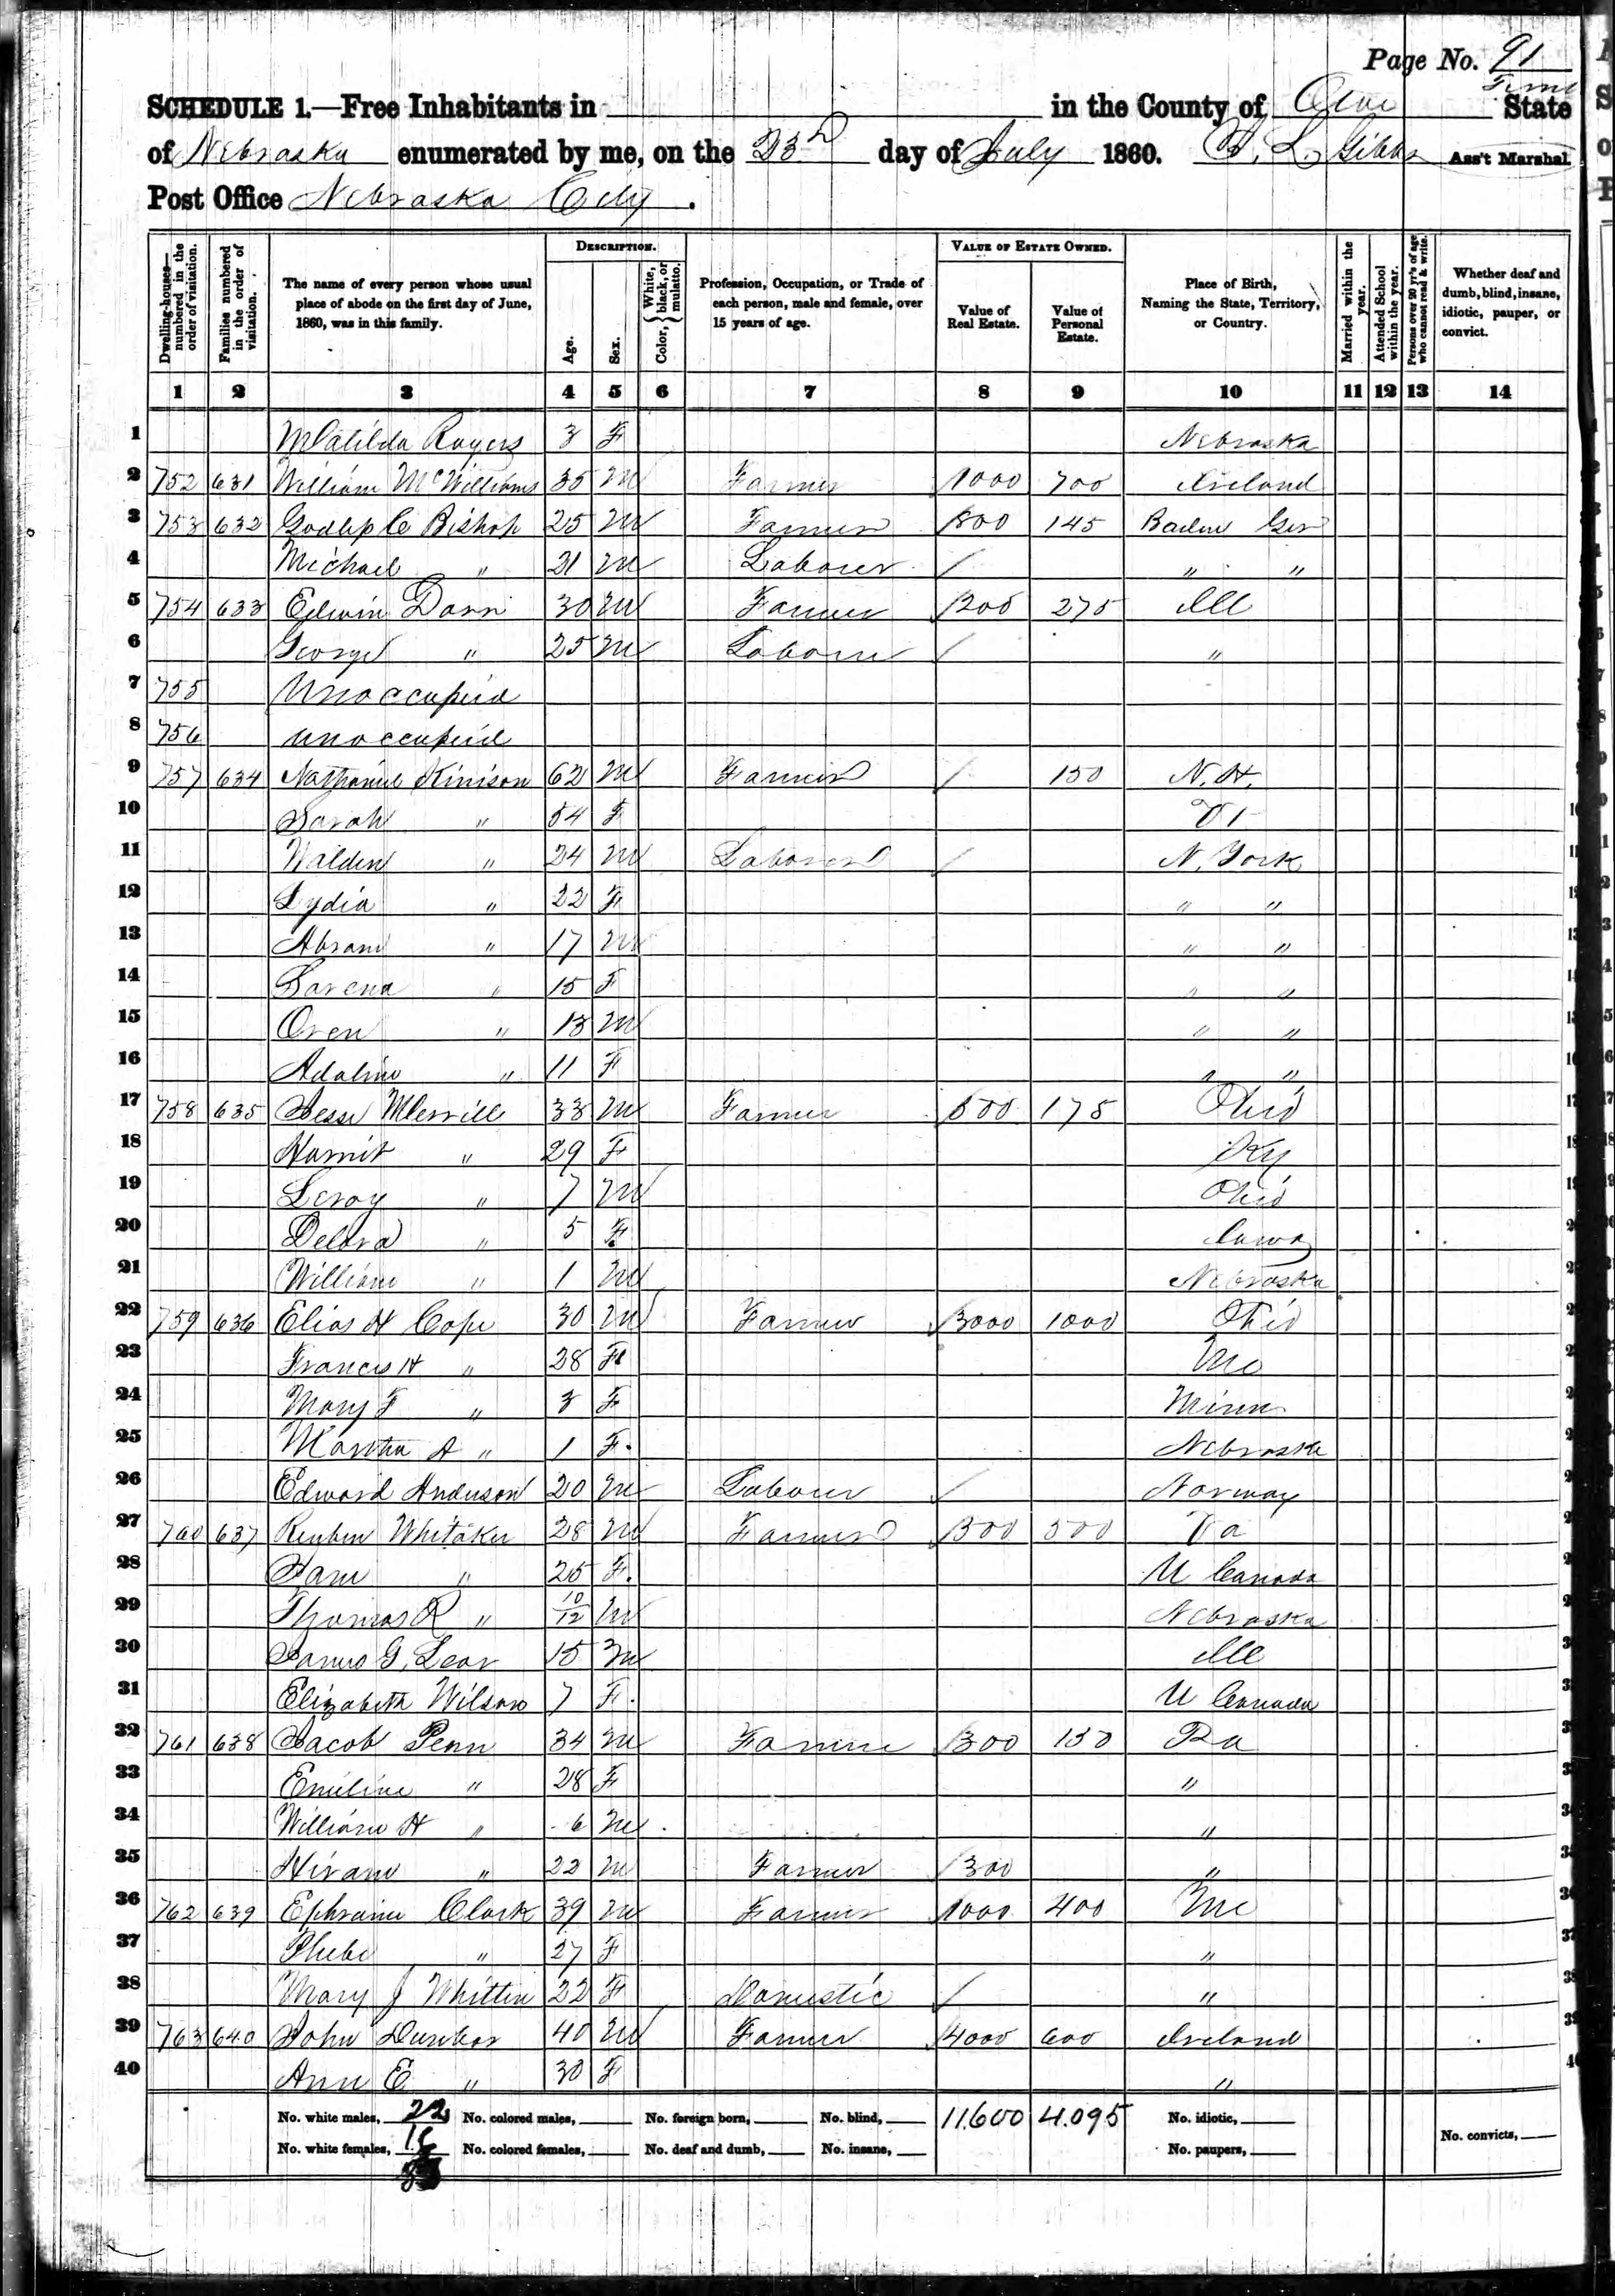 Page No. 91
SCHEDULE 1.—Free Inhabitants in in the County of Otoe State
of Nebraska enumerated by me, on the 23d day of July 1860. Gibbs Ass't Marshal
Post Office Nebraska City.
Dwelling-houses—numbered in the order of visitation. Families numbered in the order of visitation. The name of every person whose usual place of abode on the first day of June, 1860, was in this family. DESCRIPTION. Age. Sex. Color, { White, black, or mulatto. Profession, Occupation, or Trade of each person, male and female, over 15 years of age. VALUE OF ESTATE OWNED. Value of Real Estate. Value of Personal Estate. Place of Birth, Naming the State, Territory, or Country. Married within the year. Attended School within the year. Persons over 20 yr's of age who cannot read & write. Whether deaf and dumb, blind, insane, idiotic, pauper, or convict.
1 2 3 4 5 6 7 8 9 10 11 12 13 14
1 Matilda Rogers 3 F Nebraska
2 752 631 William McWilliams 35 M Farmer 1000 700 Ireland
3 753 632 Bishop 25 M Farmer 800 145 Baden Ger
4 Michael " 21 M Labourer / " "
5 754 633 Edwin Dorn 30 M Farmer 1200 275 Ill
6 George " 25 M Laborer / "
7 755 Unoccupied
8 756 unoccupied
9 757 634 Nathaniel Kinison 62 M Farmer / 150 N.H.
10 Sarah " 54 F Vt
11 Walden " 24 M Laborer / N. York
12 Lydia " 22 F " "
13 Abram " 17 M " "
14 Lorena " 15 F " "
15 Oren " 13 M " "
16 Adaline " 11 F " "
17 758 635 Jesse Merrill 33 M Farmer 500 175 Ohio
18 Harriet " 29 F Ky
19 Leroy " 7 M Ohio
20 Delora " 5 F Iowa
21 William " 1 M Nebraska
22 759 636 Elias H Cope 30 M Farmer 3000 1000 Ohio
23 Frances H " 28 F Mo
24 Mary F " 3 F Minn
25 Martha A " 1 F Nebraska
26 Edward Anderson 20 M Labourer / Norway
27 760 637 Reuben Whitaker 28 M Farmer 500 500 Va
28 Jane " 25 F U Canada
29 Thomas R " 10/12 M Nebraska
30 James G. Lear 15 M Ill
31 Elizabeth Wilson 7 F U Canada
32 761 638 Jacob Penn 34 M Farmer 300 150 Pa
33 Emiline " 28 F "
34 William H " 6 M "
35 Hiram " 22 M Farmer 300 "
36 762 639 Ephraim Clark 39 M Farmer 1000 400 Me
37 Phebe " 27 F "
38 Mary J Whitten 22 F Domestic / "
39 763 640 John Dunbar 40 M Farmer 4000 600 Ireland
40 Ann E " 30 F "
No. white males, 22 No. colored males, No. foreign born, No. blind, 11.600 4.095 No. idiotic,
No. white females, 16 No. colored females, No. deaf and dumb, No. insane, No. paupers, No. convicts,